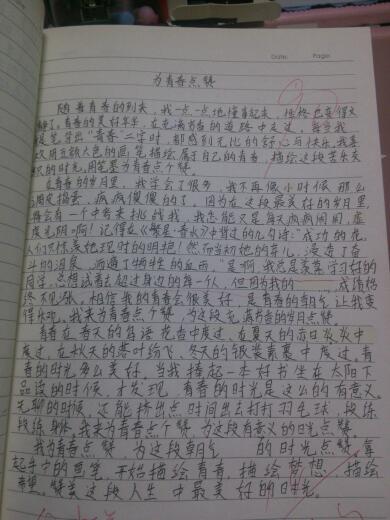 Date: Page:
为青春点赞
随着青春的到来,我一点一点地懂事起来,性格也变得文
静了。青春的美好年华,在充满书香的道路中走过,每当我
提笔写出"青春"二字时,都感到无比的舒心与快乐,我喜
欢用五颜六色的画笔描绘属于自己的青春,描绘这段苦乐交
织的时光,用笔墨为青春点个赞。
在青春的岁月里,我学会了很多,我不再像小时候那么
调皮捣蛋、疯疯傻傻的了,因为在这段最美好的岁月里,
将会有一个中考来挑战我,我怎能又是每天疯疯闹闹,虚
度光阴啊!记得在《繁星·春水》中背过的几句诗:"成功的花,
人们只惊羡她现时的明艳!然而当初她的芽儿,浸透了奋
斗的泪泉,洒遍了牺牲的血雨。"是啊,我总是羡慕学习好的
同学,总想试着去超过身边的每一个人,但因为我的 成绩始
终不见涨,相信我的青春会很美好,是青春的朝气让我变
得乐观。我来为青春点个赞,为这段充满书香的岁月点赞。
青春在春天的鸟语花香中度过,在夏天的烈日炎炎中
度过,在秋天的落叶纷飞、冬天的银装素裹中度过。青
春的时光多么美好。当我捧起一本好书坐在太阳下
品读的时候,才发现,青春的时光是这么的有意义。
无聊的时候,还能挤出点时间出去打打羽毛球,锻炼
锻炼身体。我来为青春点个赞,为这段有意义的时光点赞。
我为青春点赞,为这段朝气 的时光点赞,拿
起手中的画笔,开始描绘青春,描绘梦想,描绘
希望。赞美这段人生中最美好的时光。